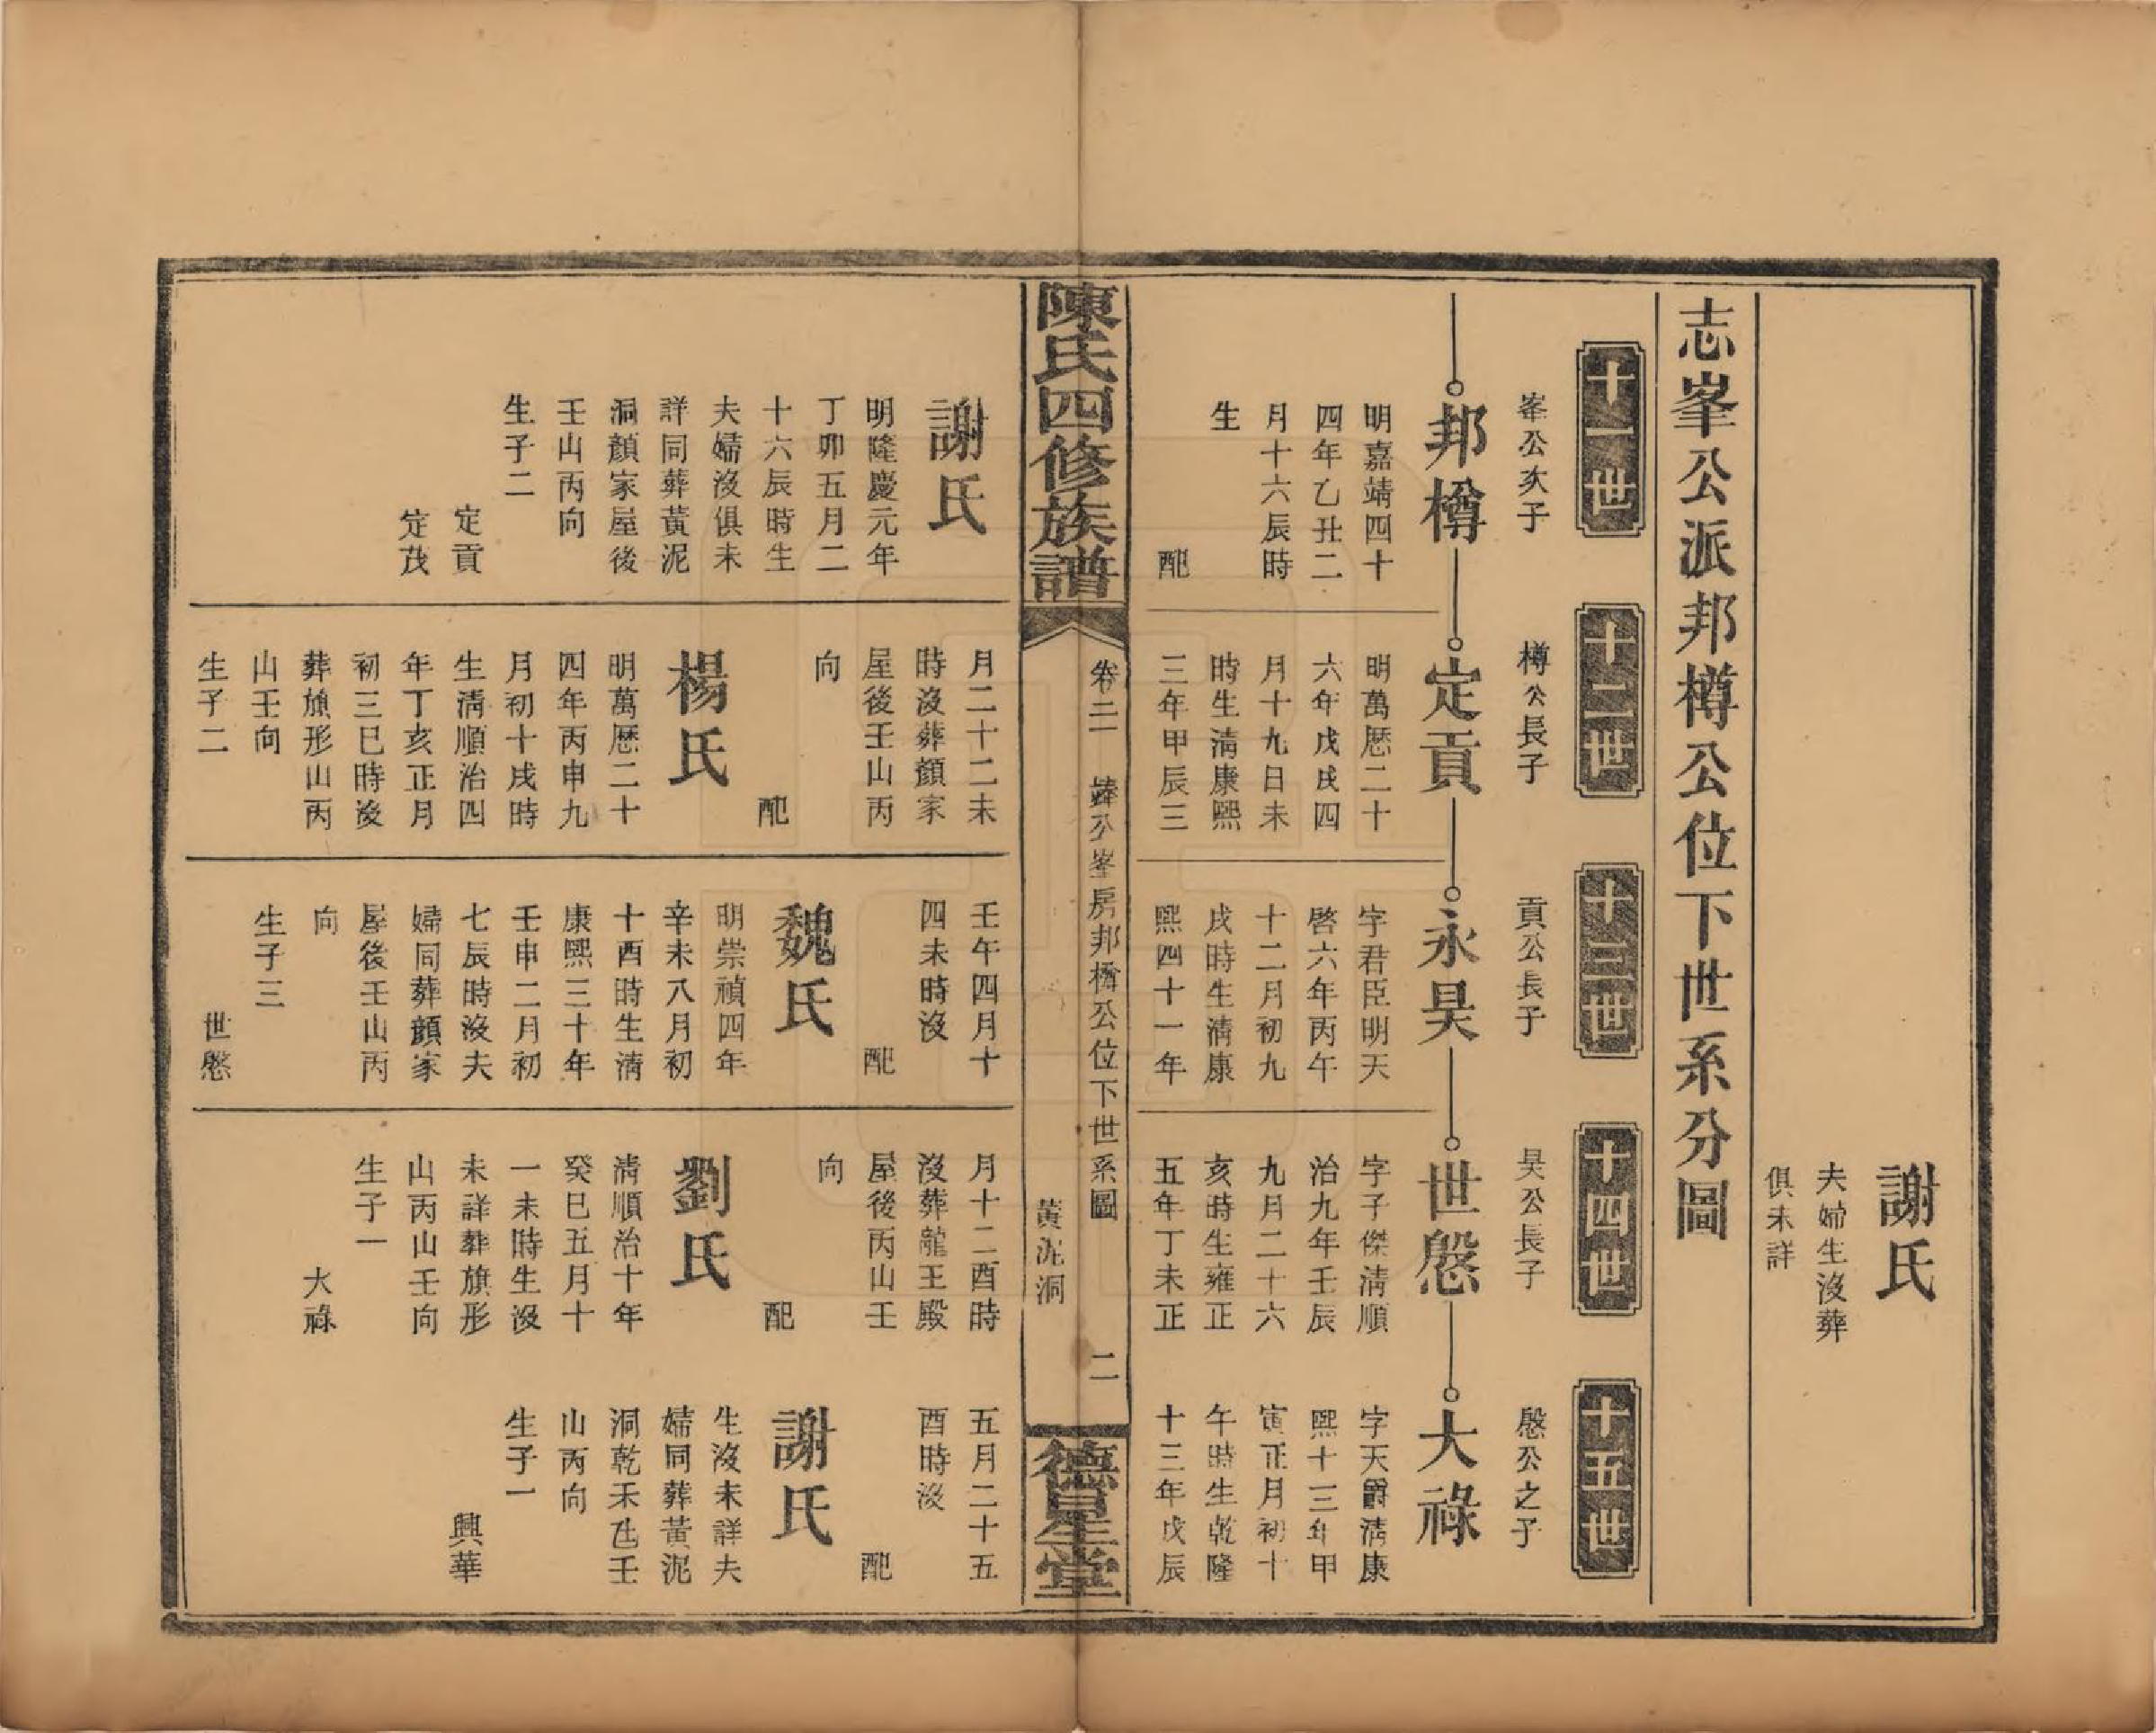 謝氏
夫婦生沒葬
俱未詳
志峯公派邦樽公位下世系分圖
十一世
十二世
十三世
十四世
十五世
峯公次子
邦樽
明嘉靖四十
四年乙丑二
月十六辰時
生
配
樽公長子
定貢
明萬歷二十
六年戊戌四
月十九日未
時生清康熙
三年甲辰三
貢公長子
永昊
字君臣明天
啓六年丙午
十二月初九
戌時生清康
熙四十一年
昊公長子
世慇
字子傑清順
治九年壬辰
九月二十六
亥時生雍正
五年丁未正
慇公之子
大祿
字天爵清康
熙十三年甲
寅正月初十
午時生乾隆
十三年戊辰
陳氏四修族譜
卷二
公峯房邦樽公位下世系圖
黃泥洞
二
德星堂
謝氏
明隆慶元年
丁卯五月二
十六辰時生
夫婦沒俱未
詳同葬黃泥
洞顏家屋後
壬山丙向
生子二
定貢
定茂
月二十二未
時沒葬顏家
屋後壬山丙
向
配
楊氏
明萬歷二十
四年丙申九
月初十戌時
生清順治四
年丁亥正月
初三巳時沒
葬旗形山丙
山壬向
生子二
壬午四月十
四未時沒
配
魏氏
明崇禎四年
辛未八月初
十酉時生清
康熙三十年
壬申二月初
七辰時沒夫
婦同葬顏家
屋後壬山丙
向
生子三
世慇
月十二酉時
沒葬龍王殿
屋後丙山壬
向
配
劉氏
清順治十年
癸巳五月十
一未時生沒
未詳葬旗形
山丙山壬向
生子一
大祿
五月二十五
酉時沒
配
謝氏
生沒未詳夫
婦同葬黃泥
洞乾禾𠱃壬
山丙向
生子一
興華